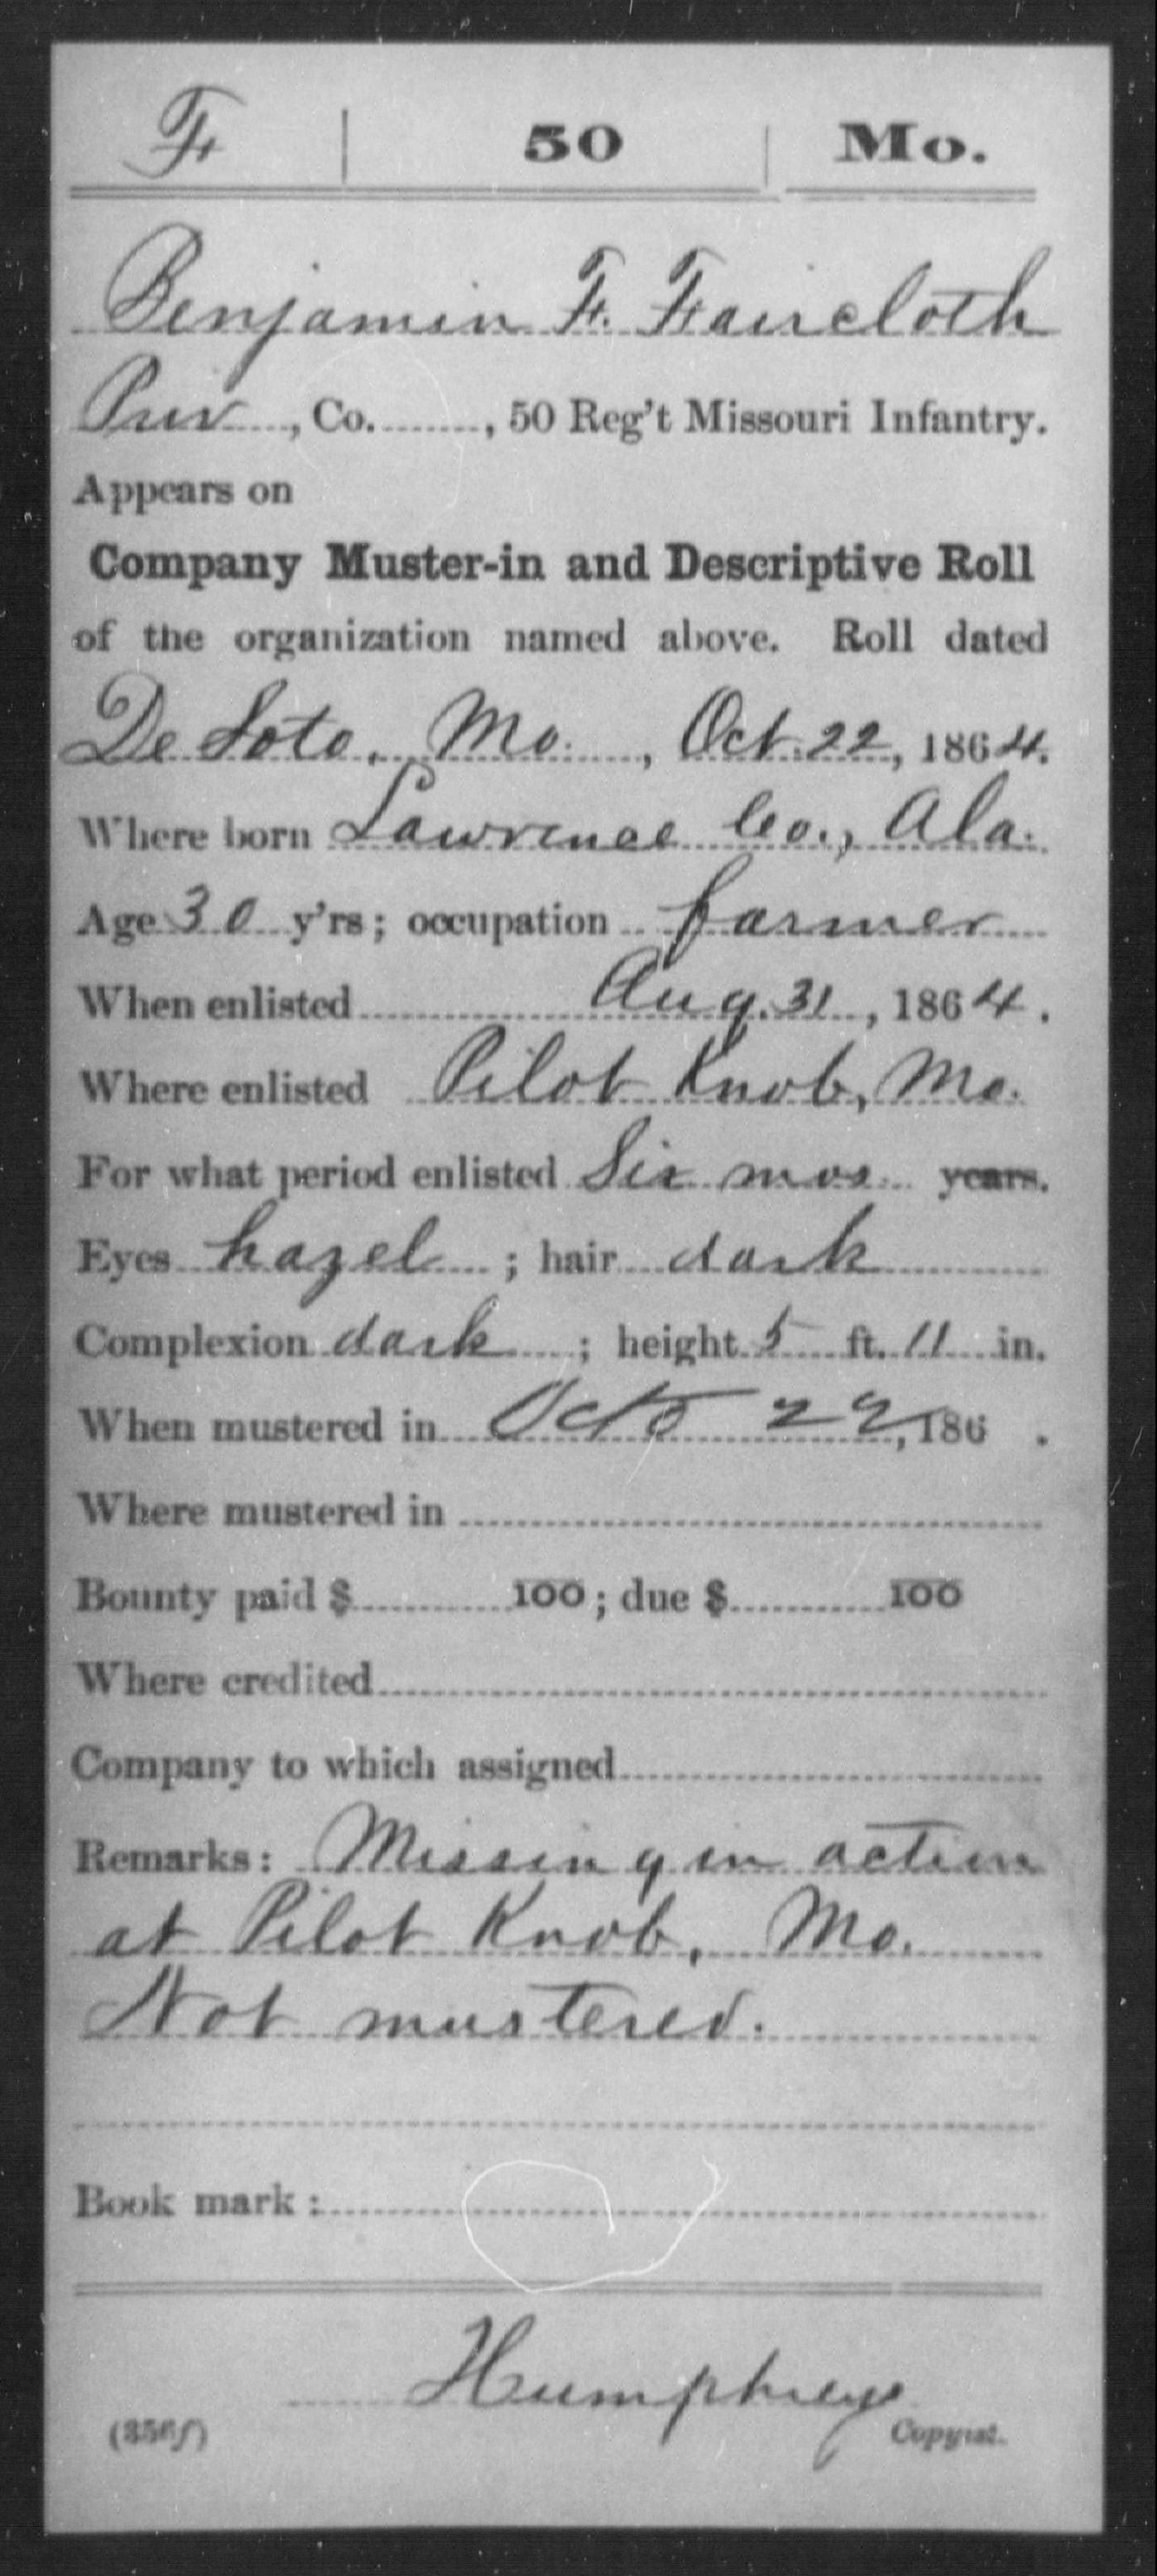 F | 50 | Mo.
Benjamin F. Faircloth
Priv, Co. , 50 Reg't Missouri Infantry.
Appears on
Company Muster-in and Descriptive Roll
of the organization named above. Roll dated
De Soto, Mo. , Oct. 22, 1864.
Where born Lawrence Co., Ala.
Age 30 y'rs; occupation farmer
When enlisted Aug. 31, 1864.
Where enlisted Pilot Knob, Mo.
For what period enlisted Six mos years.
Eyes hazel ; hair dark
Complexion dark ; height 5 ft. 11 in.
When mustered in Octo 22, 186 .
Where mustered in
Bounty paid $ 100 ; due $ 100
Where credited
Company to which assigned
Remarks: Missing in action
at Pilot Knob, Mo.
Not mustered.
Book mark :
Humphreys
(356f) Copyist.